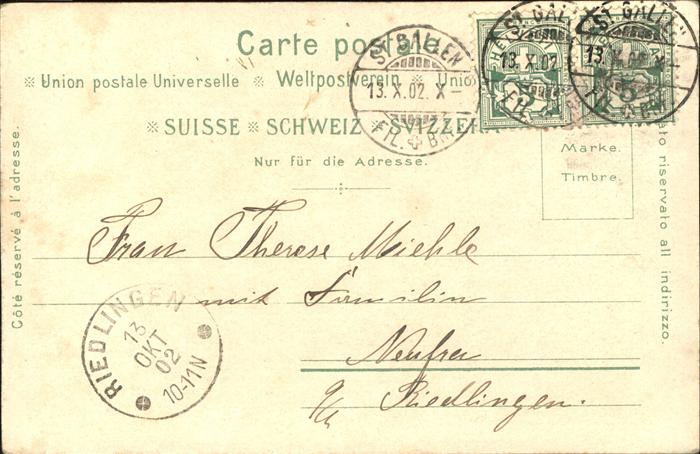 Carte postale
Union postale Universelle Weltpostverein Unio
SUISSE SCHWEIZ SVIZZERA
Nur für die Adresse.
Côté réservé à l'adresse.
ato riservato all indirizzo.
Marke.
Timbre.
ST. GALLEN
13. X. 02. X–
FIL. BR
ST. GALLEN
13. X. 02.
FIL.
ST. GALLEN
13. X. 02. X–
FIL. BR
HEL
Frau Therese Miehle
mit Familie
Neufra
Riedlingen.
RIEDLINGEN
13
OKT
02
10-11N